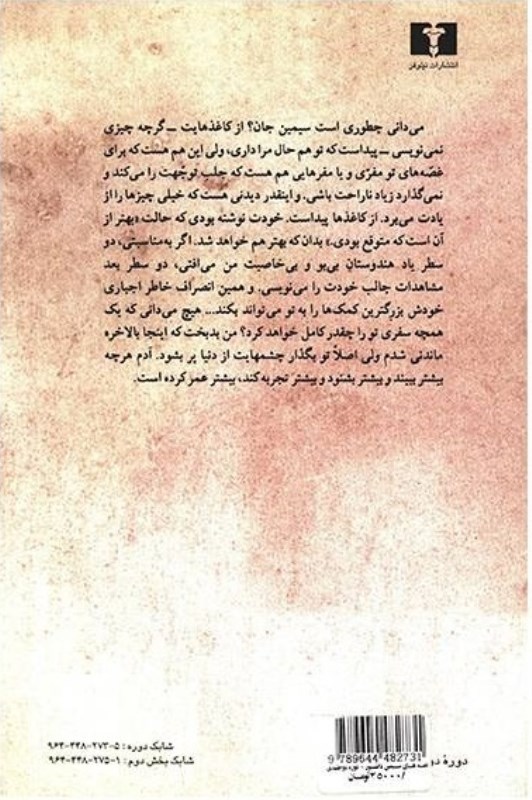 انتشارات نیلوفر
می‌دانی چطوری است سیمین جان؟ از کاغذهایت ــ گرچه چیزی
نمی‌نویسی ــ پیداست که تو هم حال مرا داری، ولی این هم هست که برای
غصّه‌های تو مفرّی و یا مفرهایی هم هست که جلب توجّهت را می‌کند و
نمی‌گذارد زیاد ناراحت باشی. و اینقدر دیدنی هست که خیلی چیزها را از
یادت می‌برد. از کاغذها پیداست. خودت نوشته بودی که حالت «بهتر از
آن است که متوقع بودی.» بدان که بهتر هم خواهد شد. اگر به‌مناسبتی، دو
سطر یاد هندوستانِ بی‌بو و بی‌خاصیت من می‌افتی، دو سطر بعد
مشاهدات جالب خودت را می‌نویسی. و همین انصراف خاطر اجباری
خودش بزرگترین کمک‌ها را به تو می‌تواند بکند... هیچ می‌دانی که یک
همچه سفری تو را چقدر کامل خواهد کرد؟ من بدبخت که اینجا بالاخره
ماندنی شدم ولی اصلاً تو بگذار چشمهایت از دنیا پر بشود. آدم هرچه
بیشتر ببیند و بیشتر بشنود و بیشتر تجربه کند، بیشتر عمر کرده است.
شابک دوره: ۵-۲۷۳-۴۴۸-۹۶۴
شابک بخش دوم: ۱-۲۷۵-۴۴۸-۹۶۴
9 789644 482731
دورهٔ دو
۳۵۰۰۰/ تومان